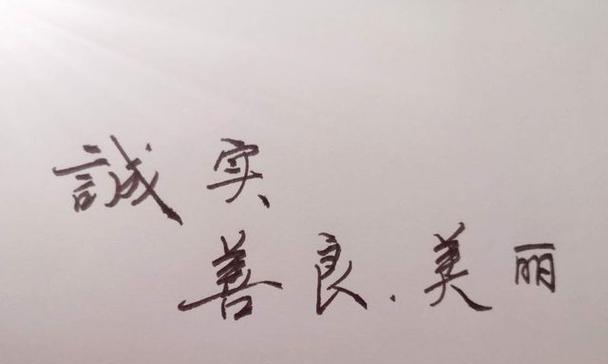 誠实
善良.美丽